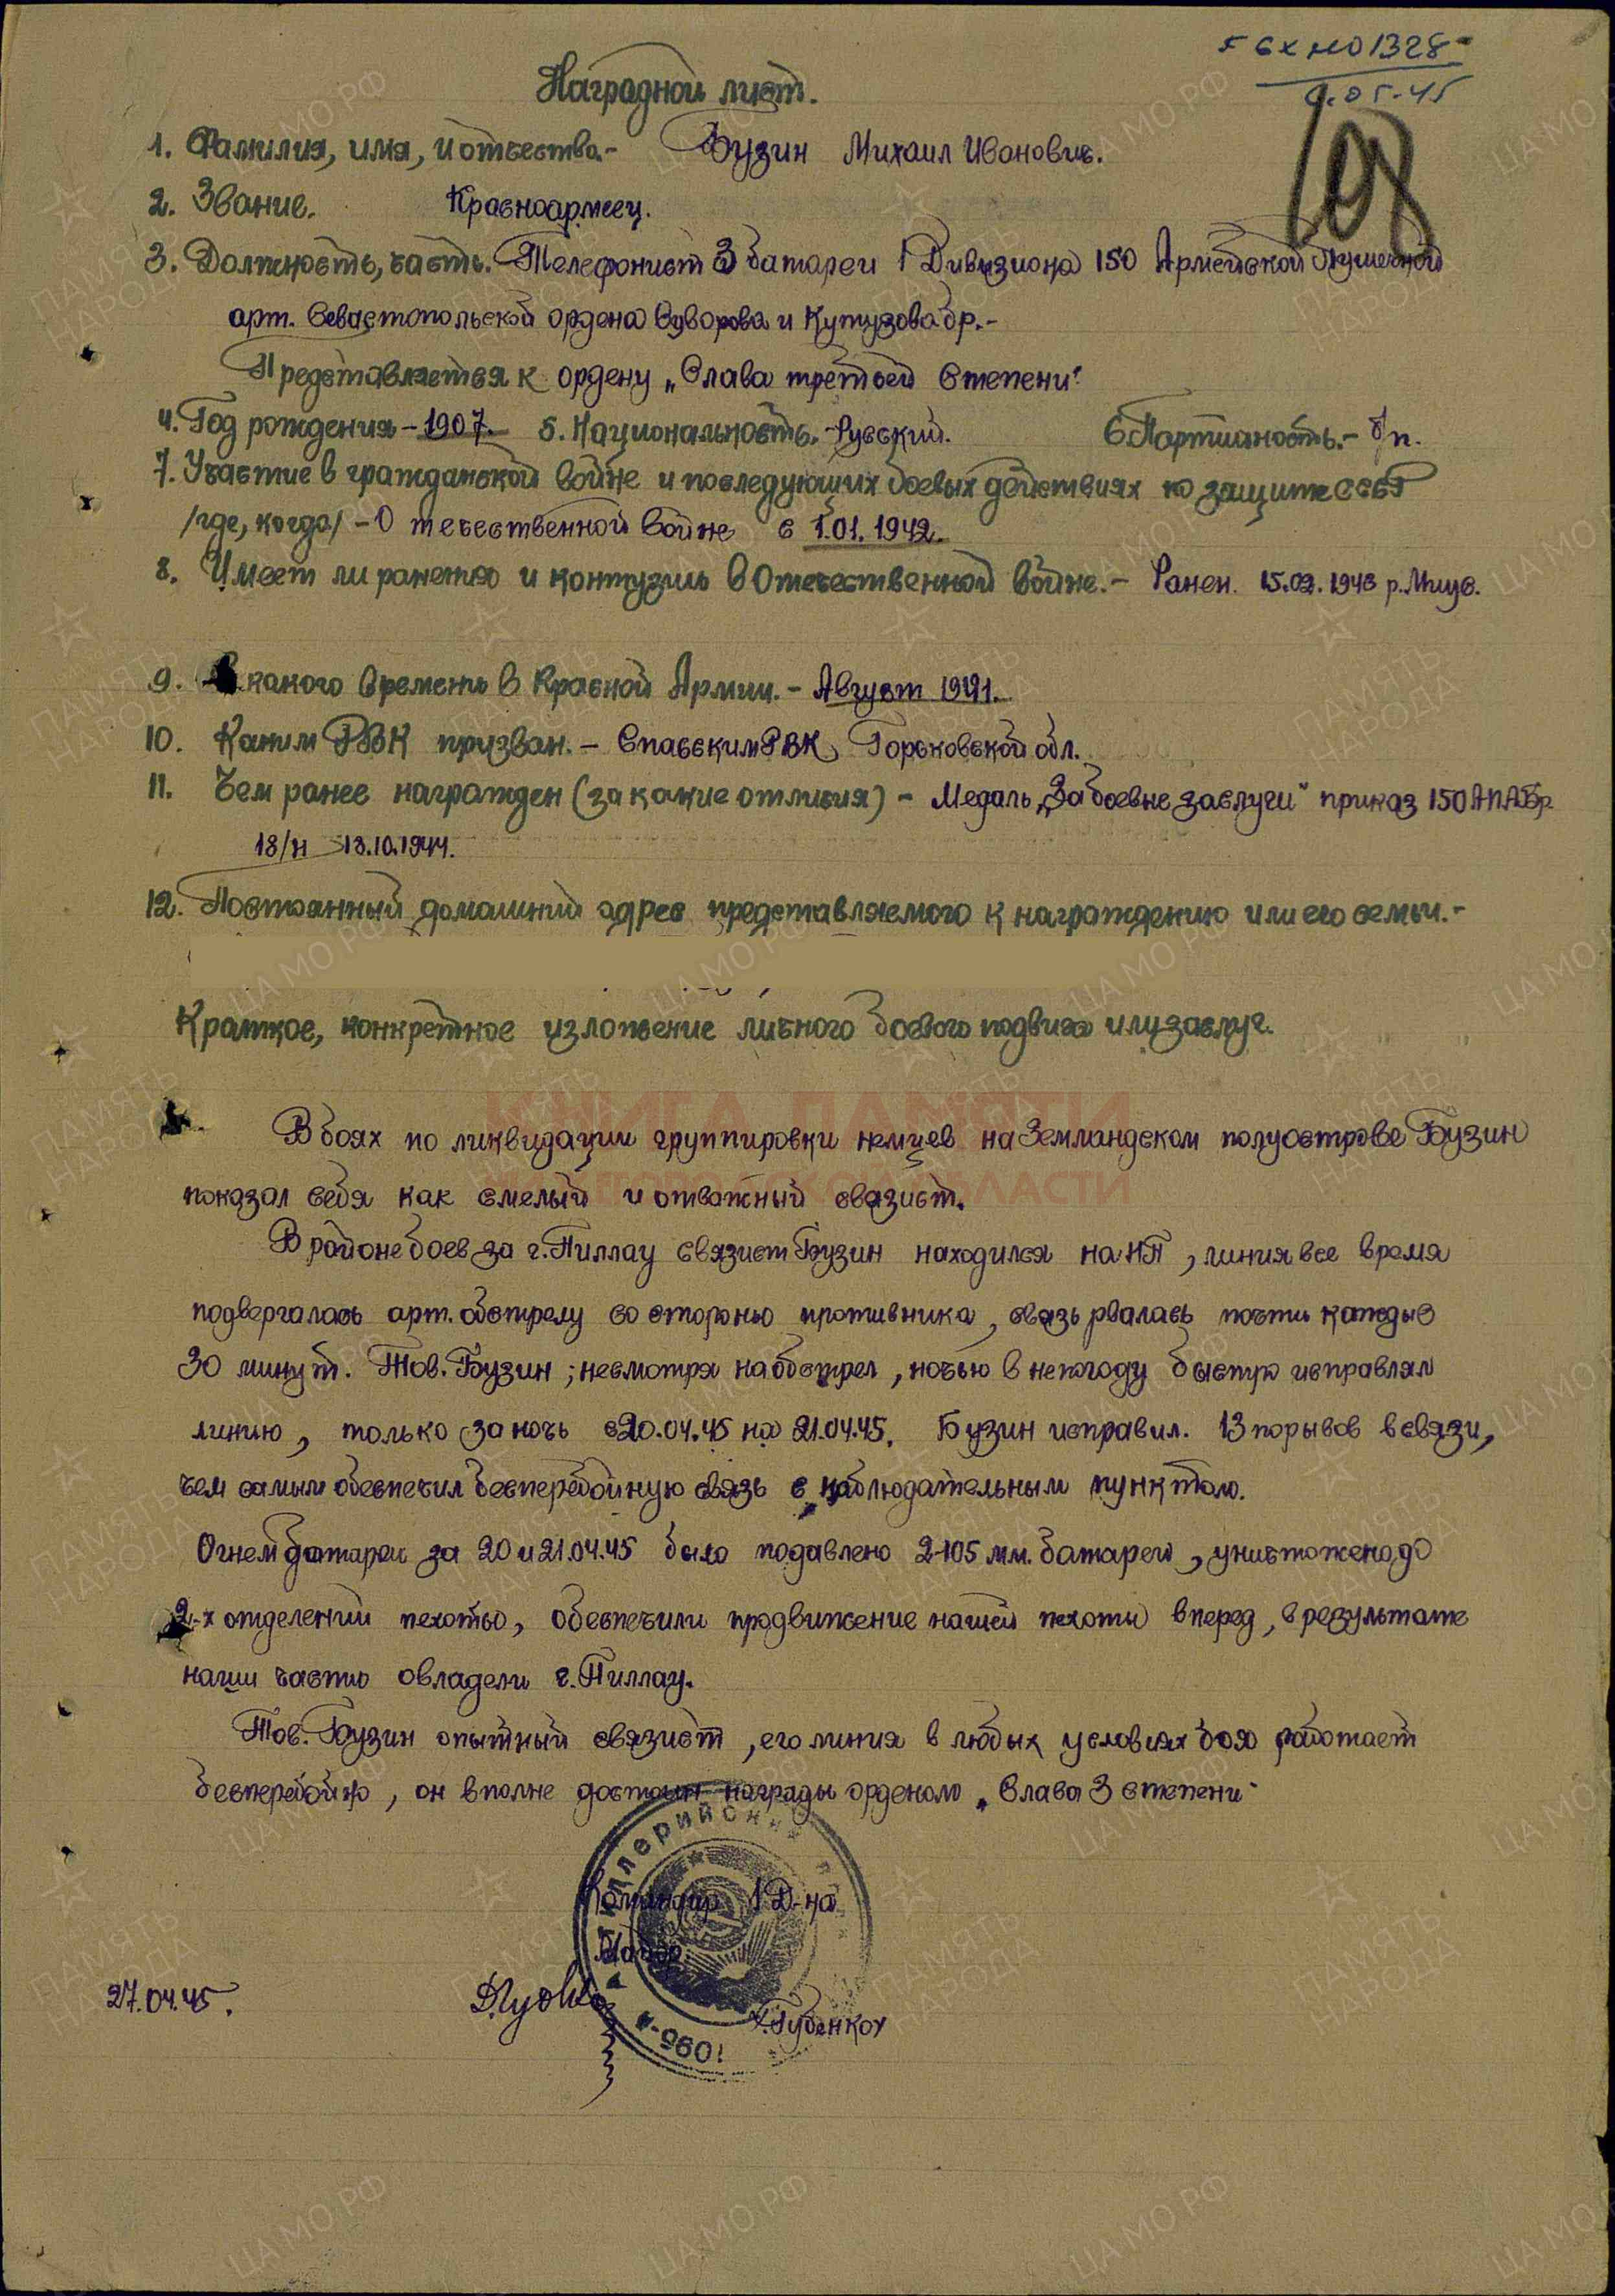 вх №01328
.05.45
108
Наградной лист.
1. Фамилия, имя, и отчество.- Бузин Михаил Иванович.
2. Звание. Красноармеец.
3. Должность, часть. Телефонист 3 батареи 1 Дивизиона 150 Армейской Пушечной
арт. Севастопольской ордена Суворова и Кутузова бр.-
Представляется к ордену „Слава третьей степени"
4. Год рождения - 1907. 5. Национальность. - Русский. 6. Партийность.- б/п.
7. Участие в гражданской войне и последующих боевых действиях по защите СССР
/где, когда/ - Отечественной войне с 1.01.1942.
8. Имеет ли ранения и контузии в Отечественной войне.- Ранен. 15.02.1943 р. Миус.
9. С какого времени в Красной Армии.- Август 1941.
10. Каким РВК призван.- Спасским РВК, Горьковской обл.
11. Чем ранее награжден (за какие отличия) - Медаль „За боевые заслуги" приказ 150 АПАБр
18/н 13.10.1944.
12. Постоянный домашний адрес представляемого к награждению или его семьи.-
Краткое, конкретное изложение личного боевого подвига или заслуг.
КНИГА ПАМЯТИ
В боях по ликвидации группировки немцев на Земландском полуострове Бузин
показал себя как смелый и отважный связист.
В районе боев за г. Пиллау связист Бузин находился на НП, линия все время
подвергалась арт. обстрелу со стороны противника, связь рвалась почти каждые
30 минут. Тов. Бузин; несмотря на обстрел, ночью в непогоду быстро исправлял
линию, только за ночь с 20.04.45 на 21.04.45. Бузин исправил. 13 порывов в связи,
чем самым обеспечил бесперебойную связь с наблюдательным пунктом.
Огнем батареи за 20 и 21.04.45 было подавлено 2-105 мм. батареи, уничтожено до
2-х отделений пехоты, обеспечили продвижение нашей пехоты вперед, в результате
наши части овладели г. Пиллау.
Тов. Бузин опытный связист, его линия в любых условиях боя работает
бесперебойно, он вполне достоин награды орденом „Слава 3 степени"
Командир 1 Д-на
Майор
27.04.45.
Губенков